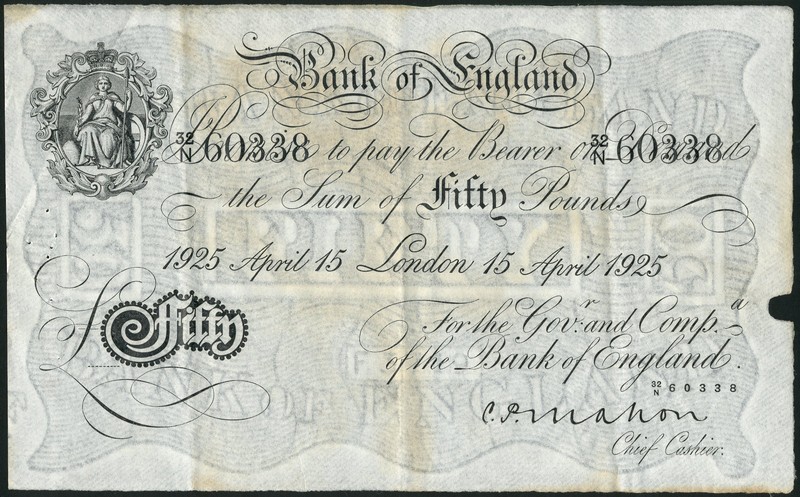 Bank of England
32/N 60338 to pay the Bearer on Demand 32/N 60338
the Sum of Fifty Pounds
1925 April 15 London 15 April 1925
£ Fifty
For the Gov.r and Comp.a
of the Bank of England.
32/N 60338
C.P. Mahon
Chief Cashier.
FIFTY
BANK OF ENGLAND